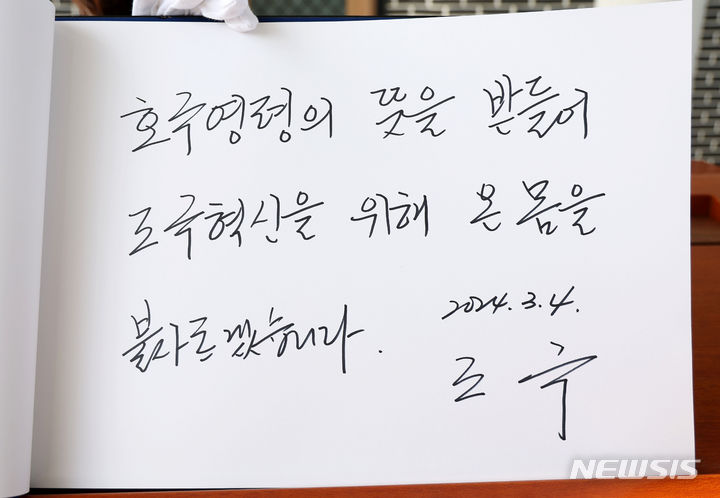 호국영령의 뜻을 받들어
조국혁신을 위해 온 몸을
불사르겠습니다.
2024. 3. 4.
조 국
NEWSIS